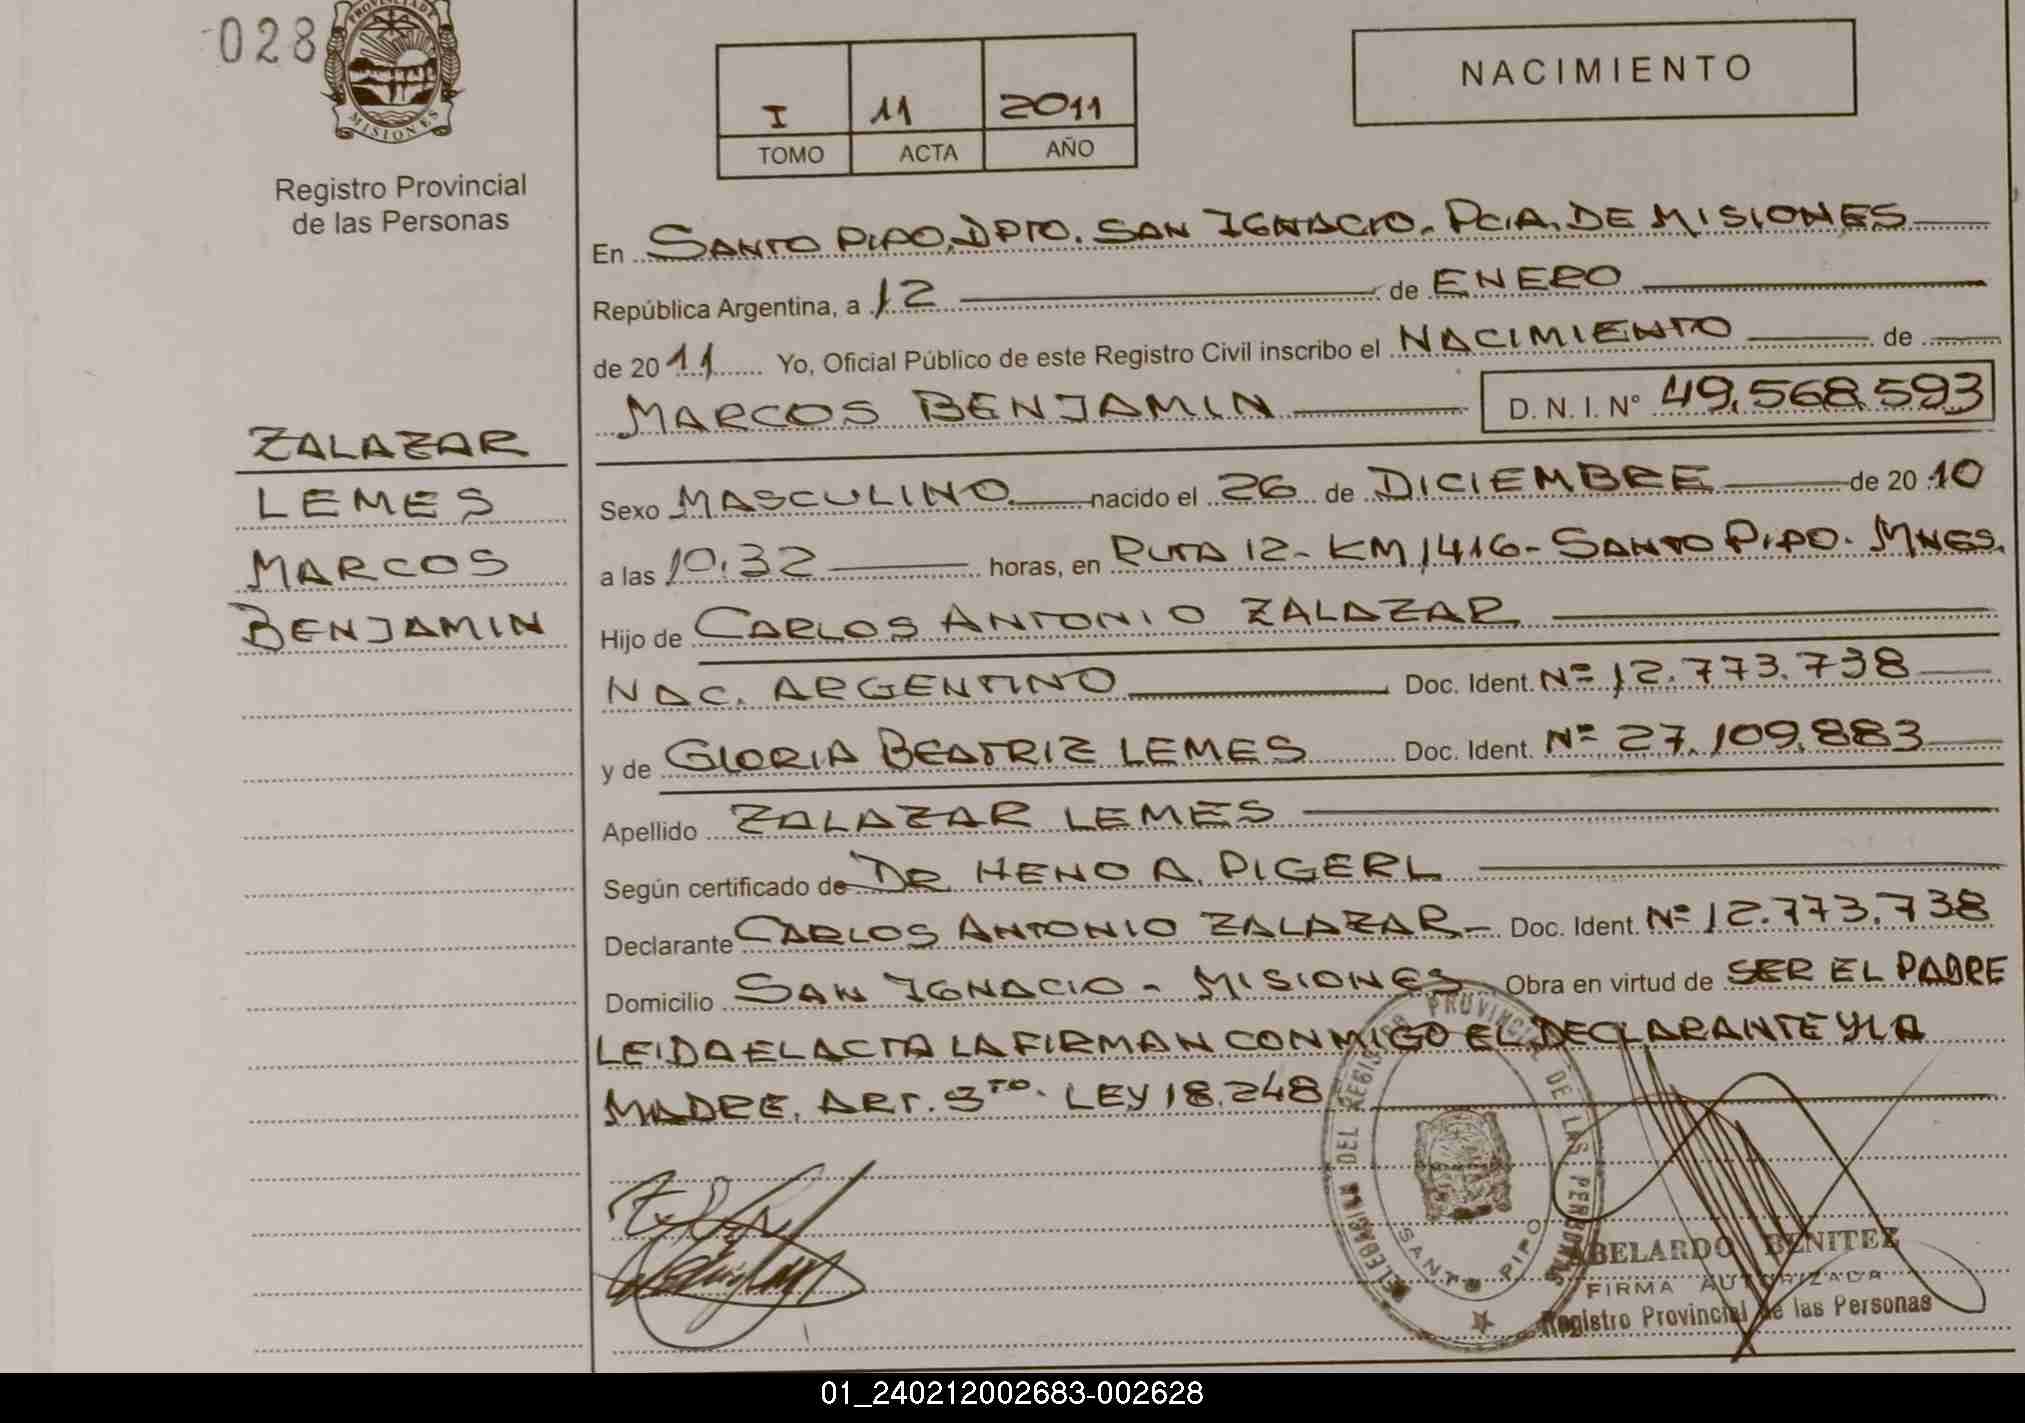 028
PROVINCIA DE
MISIONES
Registro Provincial
de las Personas
ZALAZAR
LEMES
MARCOS
BENJAMIN
I 11 2011
TOMO ACTA AÑO
NACIMIENTO
En SANTO PIPO, DPTO. SAN IGNACIO. PCIA. DE MISIONES
República Argentina, a 12 de ENERO
de 2011 Yo, Oficial Público de este Registro Civil inscribo el NACIMIENTO de
MARCOS BENJAMIN D. N. I. Nº 49.568.593
Sexo MASCULINO nacido el 26 de DICIEMBRE de 2010
a las 10:32 horas, en RUTA 12 - KM 1416 - SANTO PIPO. MNES.
Hijo de CARLOS ANTONIO ZALAZAR
NAC. ARGENTINO Doc. Ident. Nº 12.773.738
y de GLORIA BEATRIZ LEMES Doc. Ident. Nº 27.109.883
Apellido ZALAZAR LEMES
Según certificado de DR HENO A. PIGERL
Declarante CARLOS ANTONIO ZALAZAR - Doc. Ident. Nº 12.773.738
Domicilio SAN IGNACIO - MISIONES Obra en virtud de SER EL PADRE
LEIDA EL ACTA LA FIRMAN CONMIGO EL DECLARANTE Y LA
MADRE. ART. 5TO. LEY 18.248
DELEGACION DEL REGISTRO PROVINCIAL DE LAS PERSONAS
SANTO PIPO
ABELARDO BENITEZ
FIRMA AUTORIZADA
Registro Provincial de las Personas
01_240212002683-002628